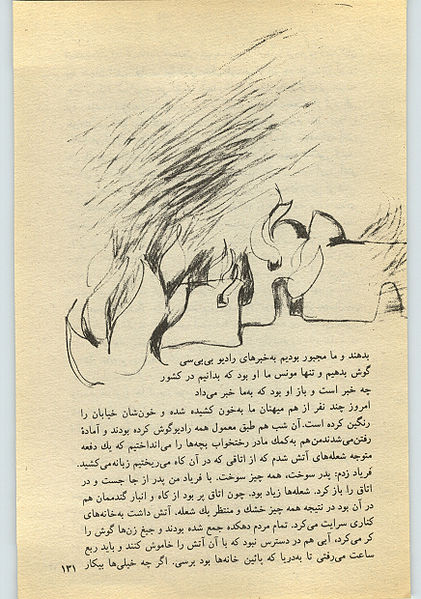 بدهند و ما مجبور بودیم به‌خبرهای رادیو بی‌بی‌سی
گوش بدهیم و تنها مونس ما او بود که بدانیم در کشور
چه خبر است و باز او بود که به‌ما خبر می‌داد
امروز چند نفر از هم میهنان ما به‌خون کشیده شده و خون‌شان خیابان را
رنگین کرده است. آن شب هم طبق معمول همه رادیوگوش کرده بودند و آمادهٔ
رفتن‌می‌شدندمن‌هم به‌کمك مادر رختخواب بچه‌ها را می‌انداختیم که یك دفعه
متوجه شعله‌های آتش شدم که از اتاقی که در آن کاه می‌ریختیم زبانه‌می‌کشید.
فریاد زدم: پدر سوخت، همه چیز سوخت. با فریاد من پدر از جا جست و در
اتاق را باز کرد. شعله‌ها زیاد بود. چون اتاق پر بود از کاه و انبار گندممان هم
در آن بود در نتیجه همه چیز خشك و منتظر یك شعله. آتش داشت به‌خانه‌های
کناری سرایت می‌کرد. تمام مردم دهکده جمع شده بودند و جیغ زن‌ها گوش را
کر می‌کرد، آبی هم در دسترس نبود که با آن آتش را خاموش کنند و باید ربع
ساعت می‌رفتی تا به‌دریا که پائین خانه‌ها بود برسی. اگر چه خیلی‌ها بیکار
۱۳۱